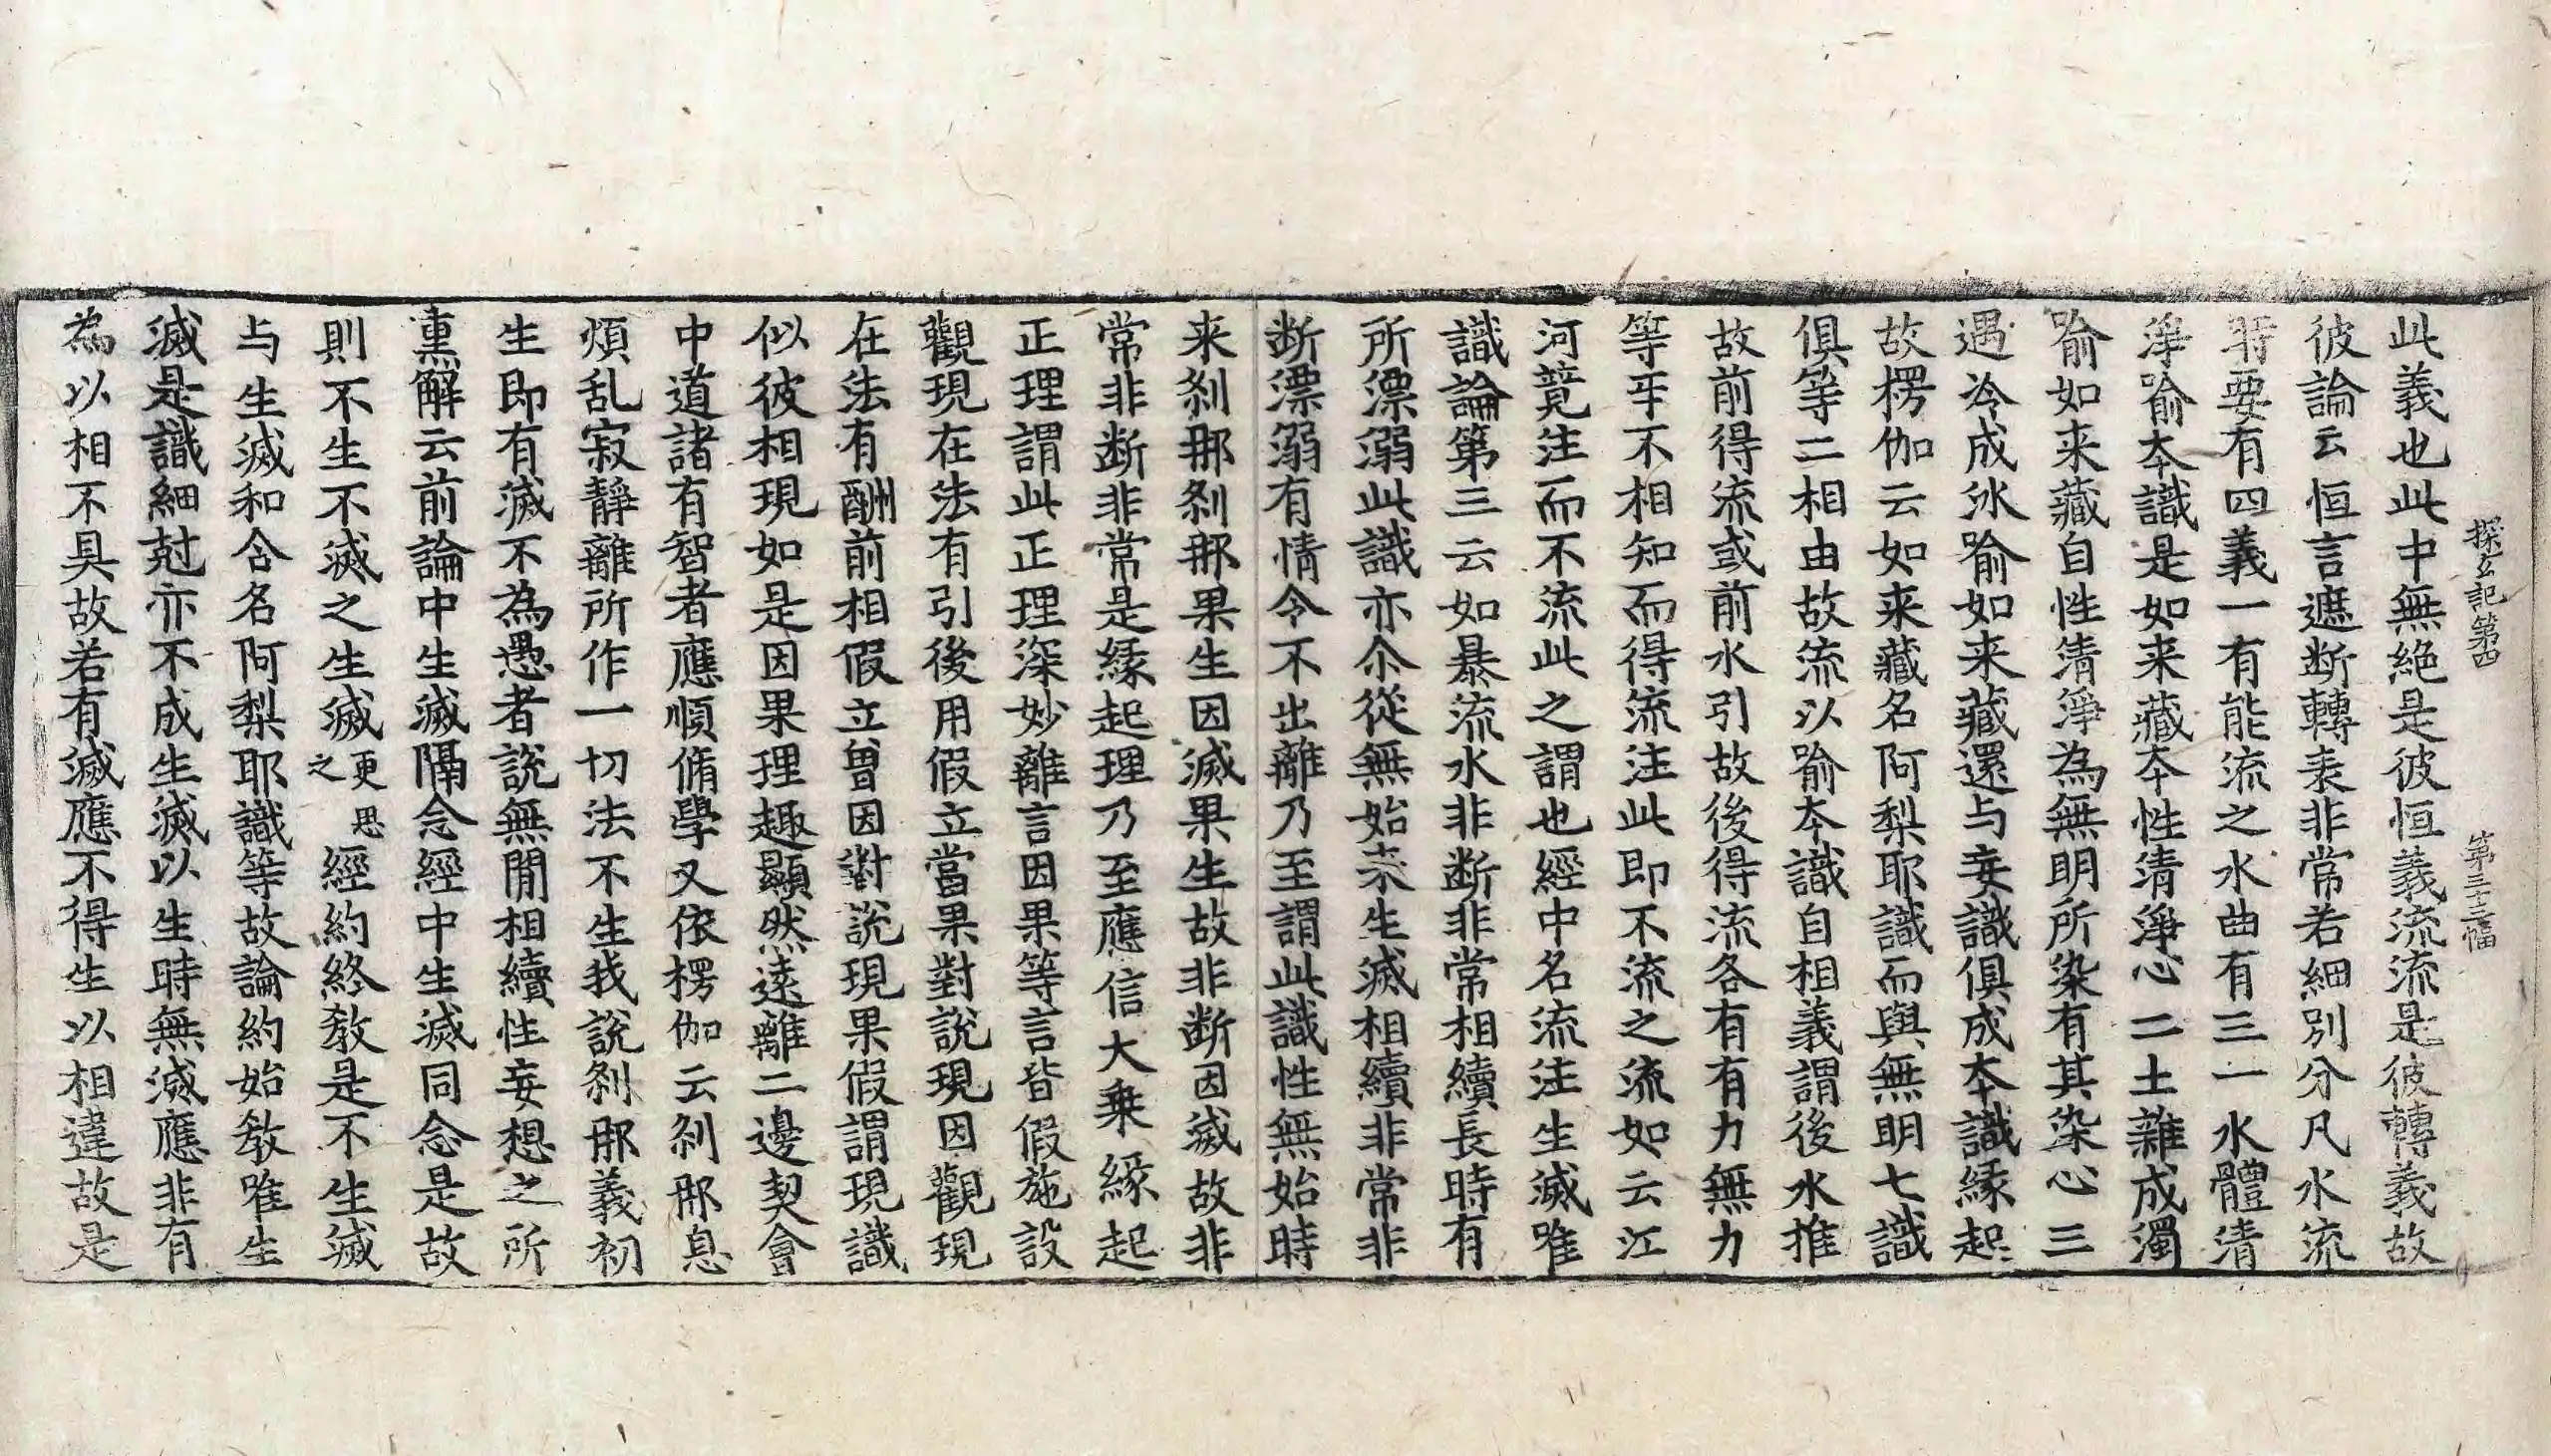 探玄記第四　第三十二幅
此義也此中無絶是彼恒義流流是彼轉義故
彼論云恒言遮断轉表非常若細別分凡水流
時要有四義一有能流之水曲有三一水體清
淨喻本識是如来藏本性清淨心二土雜成濁
喻如来藏自性清淨為無明所染有其染心三
遇冷成氷喻如来藏還与妄識俱成本識縁起
故楞伽云如来藏名阿梨耶識而與無明七識
俱等二相由故流以喻本識自相義謂後水推
故前得流或前水引故後得流各有有力無力
等㸦不相知而得流注此即不流之流如云江
河競注而不流此之謂也經中名流注生滅唯
識論第三云如暴流水非断非常相續長時有
所漂溺此識亦尒從無始来生滅相續非常非
断漂溺有情令不出離乃至謂此識性無始時
来刹那刹那果生因滅果生故非断因滅故非
常非断非常是縁起理乃至應信大乗縁起
正理謂此正理深妙離言因果等言皆假施設
觀現在法有引後用假立當果對說現因觀現
在法有酬前相假立曽因對說現果假謂現識
似彼相現如是因果理趣顯然遠離二邊契會
中道諸有智者應順脩學又依楞伽云刹那息
煩乱寂靜離所作一切法不生我說刹那義初
生即有滅不為愚者說無閒相續性妄想之所
熏解云前論中生滅隔念經中生滅同念是故
則不生不滅之生滅更思之經約終教是不生滅
与生滅和合名阿梨耶識等故論約始教唯生
滅是識細尅亦不成生滅以生時無滅應非有
為以相不具故若有滅應不得生以相違故是